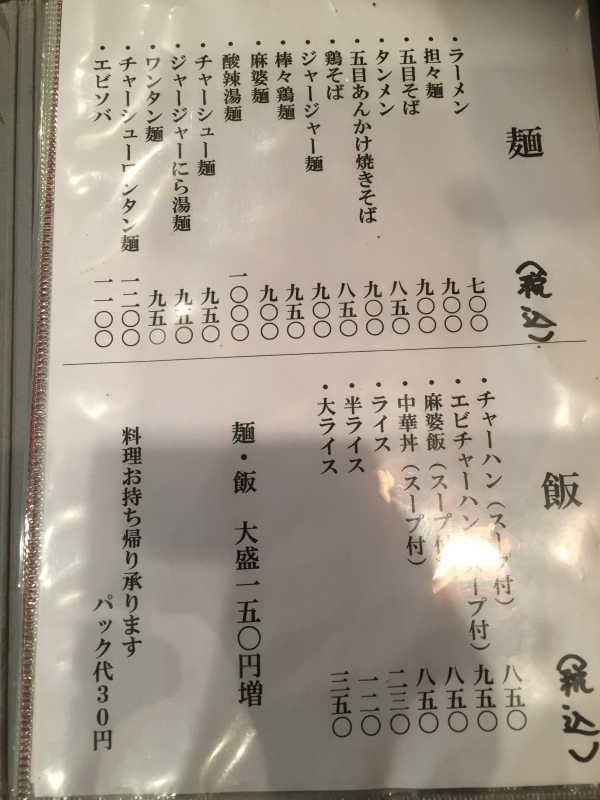 麺 (税込)
・ラーメン 七〇〇
・担々麺 九〇〇
・五目そば 九〇〇
・タンメン 八五〇
・五目あんかけ焼きそば 九〇〇
・鶏そば 八五〇
・ジャージャー麺 九〇〇
・棒々鶏麺 九五〇
・麻婆麺 九〇〇
・酸辣湯麺 一〇〇〇
・チャーシュー麺 九五〇
・ジャージャーにら湯麺 九五〇
・ワンタン麺 九五〇
・チャーシューワンタン麺 一二〇〇
・エビソバ 一一〇〇
飯 (税込)
・チャーハン(スープ付) 八五〇
・エビチャーハン(スープ付) 九五〇
・麻婆飯(スープ付) 八五〇
・中華丼(スープ付) 八五〇
・ライス 二三〇
・半ライス 一二〇
・大ライス 三五〇
麺・飯 大盛一五〇円増
料理お持ち帰り承ります
パック代30円